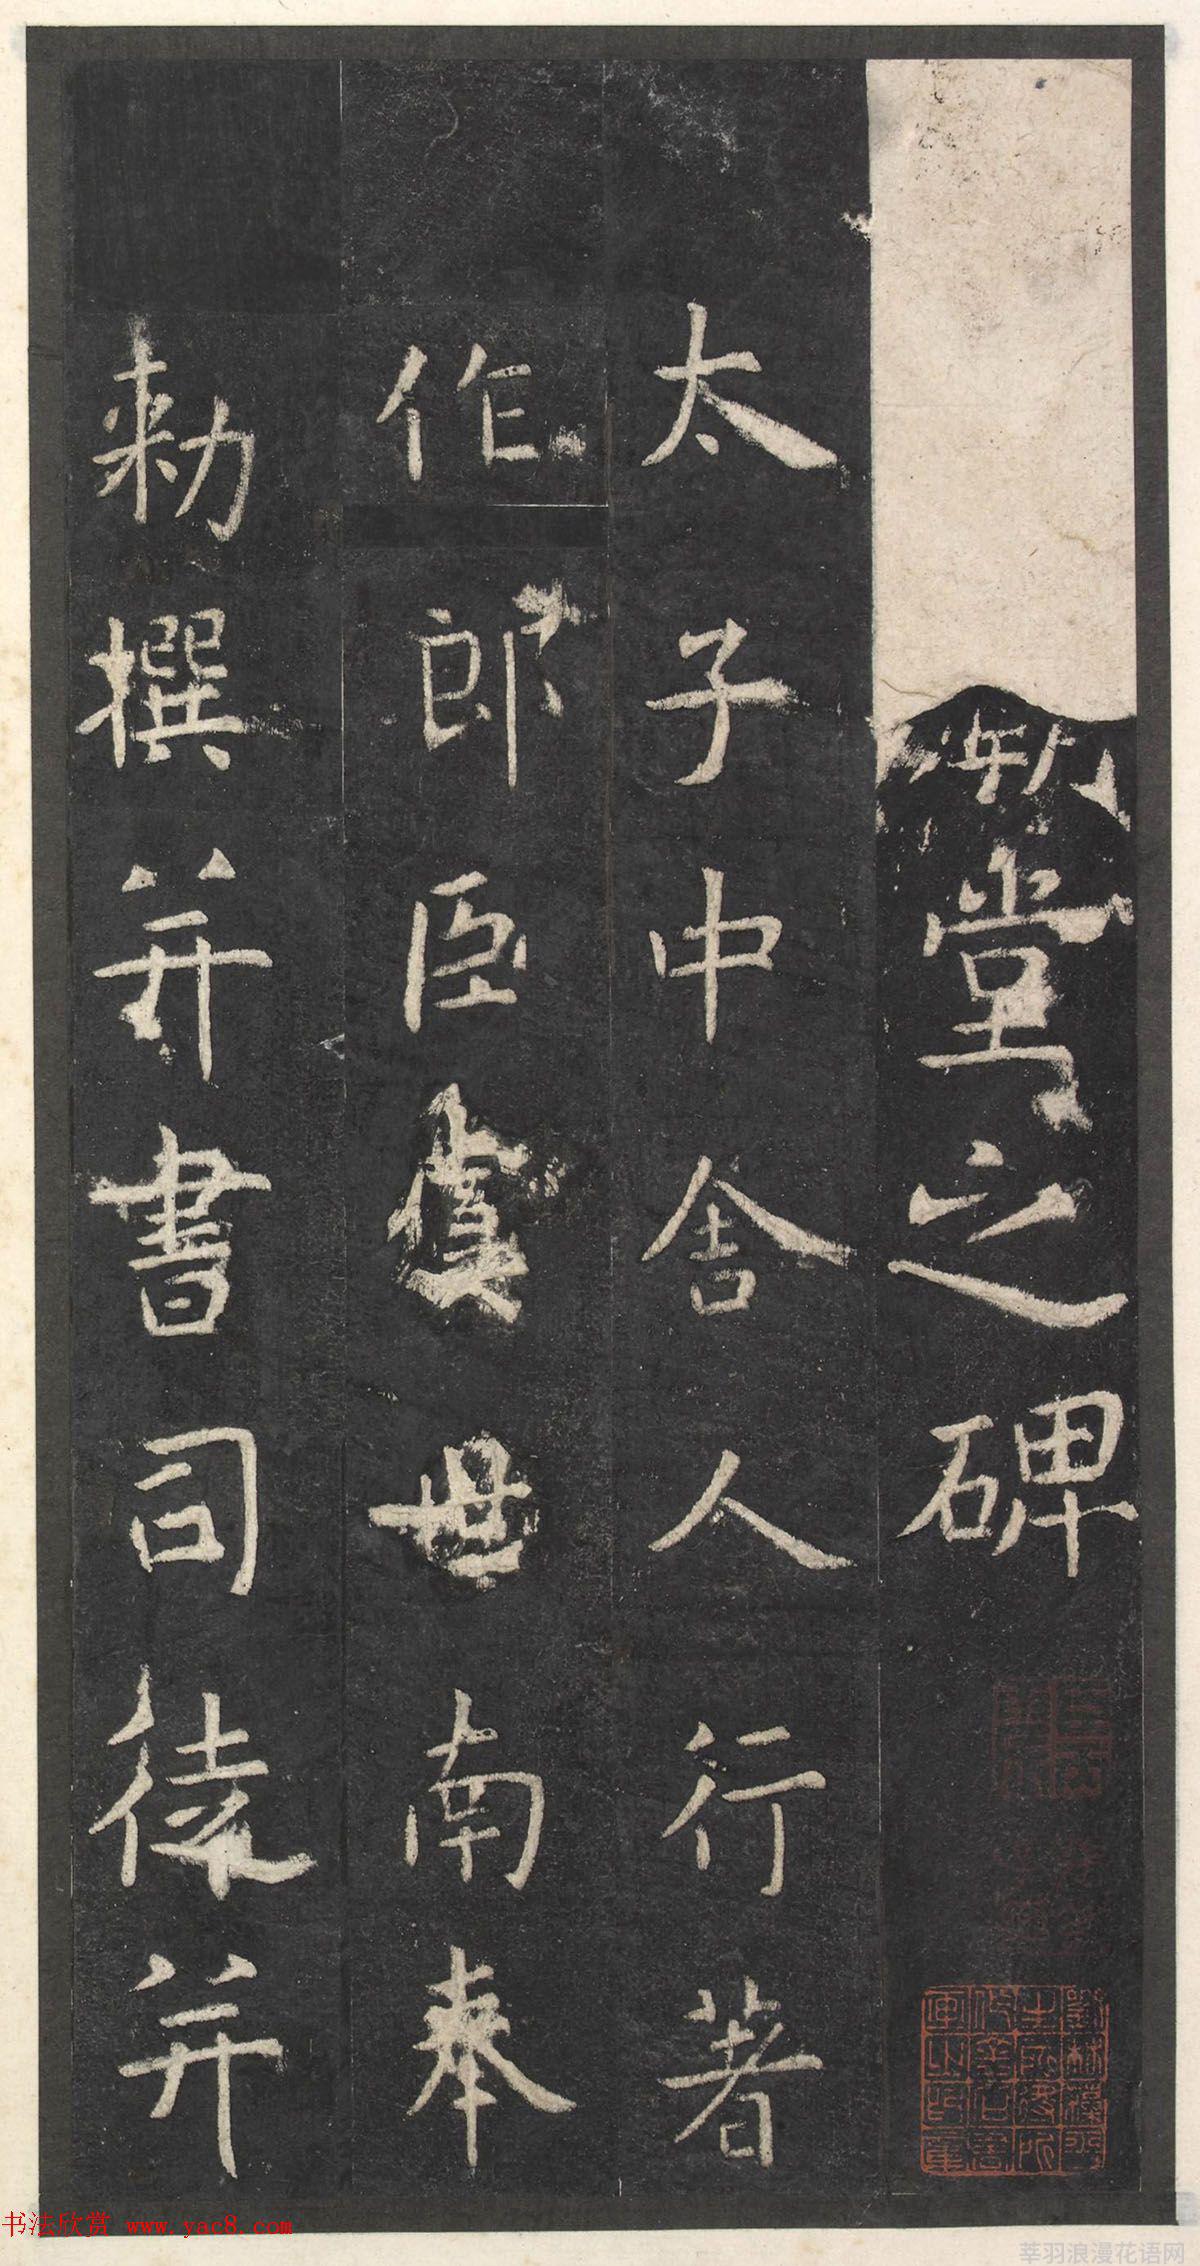 堂之碑
太子中舍人行著
作郎臣虞世南奉
勅撰并書司徒并
书法欣赏 www.yac8.com
莘羽浪漫花语网